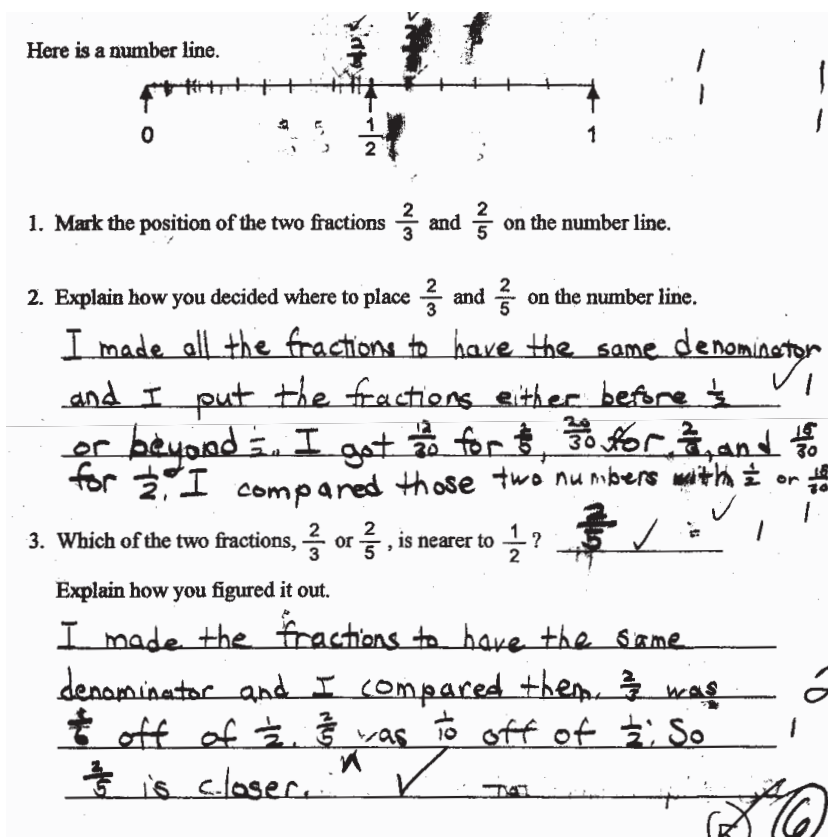 Here is a number line.
2/3
0
1/2
1
1. Mark the position of the two fractions 2/3 and 2/5 on the number line.
2. Explain how you decided where to place 2/3 and 2/5 on the number line.
I made all the fractions to have the same denominator
and I put the fractions either before 1/2
or beyond 1/2. I got 12/30 for 2/5, 20/30 for 2/3, and 15/30
for 1/2. I compared those two numbers with 1/2 or 15/30
3. Which of the two fractions, 2/3 or 2/5, is nearer to 1/2? 2/5
Explain how you figured it out.
I made the fractions to have the same
denominator and I compared them. 2/3 was
1/6 off of 1/2. 2/5 was 1/10 off of 1/2. So
2/5 is closer.
6